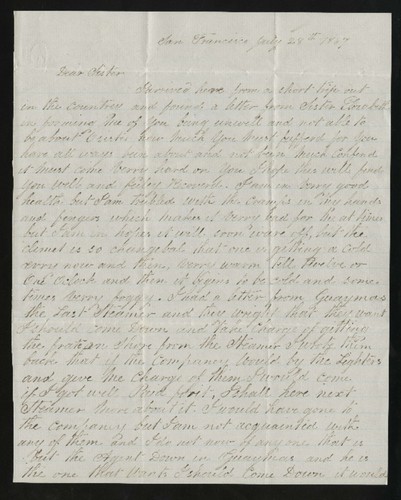 San Francisco July 29th 1867
Dear Sister
I arrived here from a short trip out
in the country and found a letter from Sister
in forming me of you being unwell and not able to
be about Dear Sister how much you must suffered for you
have all ways been about and not been much confined
it must come verry hard on you I hope this will find
you well and fuley Recoverd. I am in verry good
health but I am trobled with the cramps in my hands
and fengers which makes it verry bad for me at times
but I am in hopes it will soon ware off, but the
climet is so changebal that one is getting a cold
evry now and then, very warm till twelve or
One Oclock and then it begins to be cold and some
times verry foggy. I had a letter from Guaymas
the Last Steamer and they wright that they want
I should come Down and take Charge of getting
the frate on Shore from the Steamer I wrote them
back that if the Companey would by the Lighters
and give me Charge of them I would come
if I got well I shall here next
Steamer there about it. I would have gone to
the company but I am not acquainted with
any of them and I do not now of any one that is
But the Agent Down in Guaymas and he is
the one that wants I should come Down it would